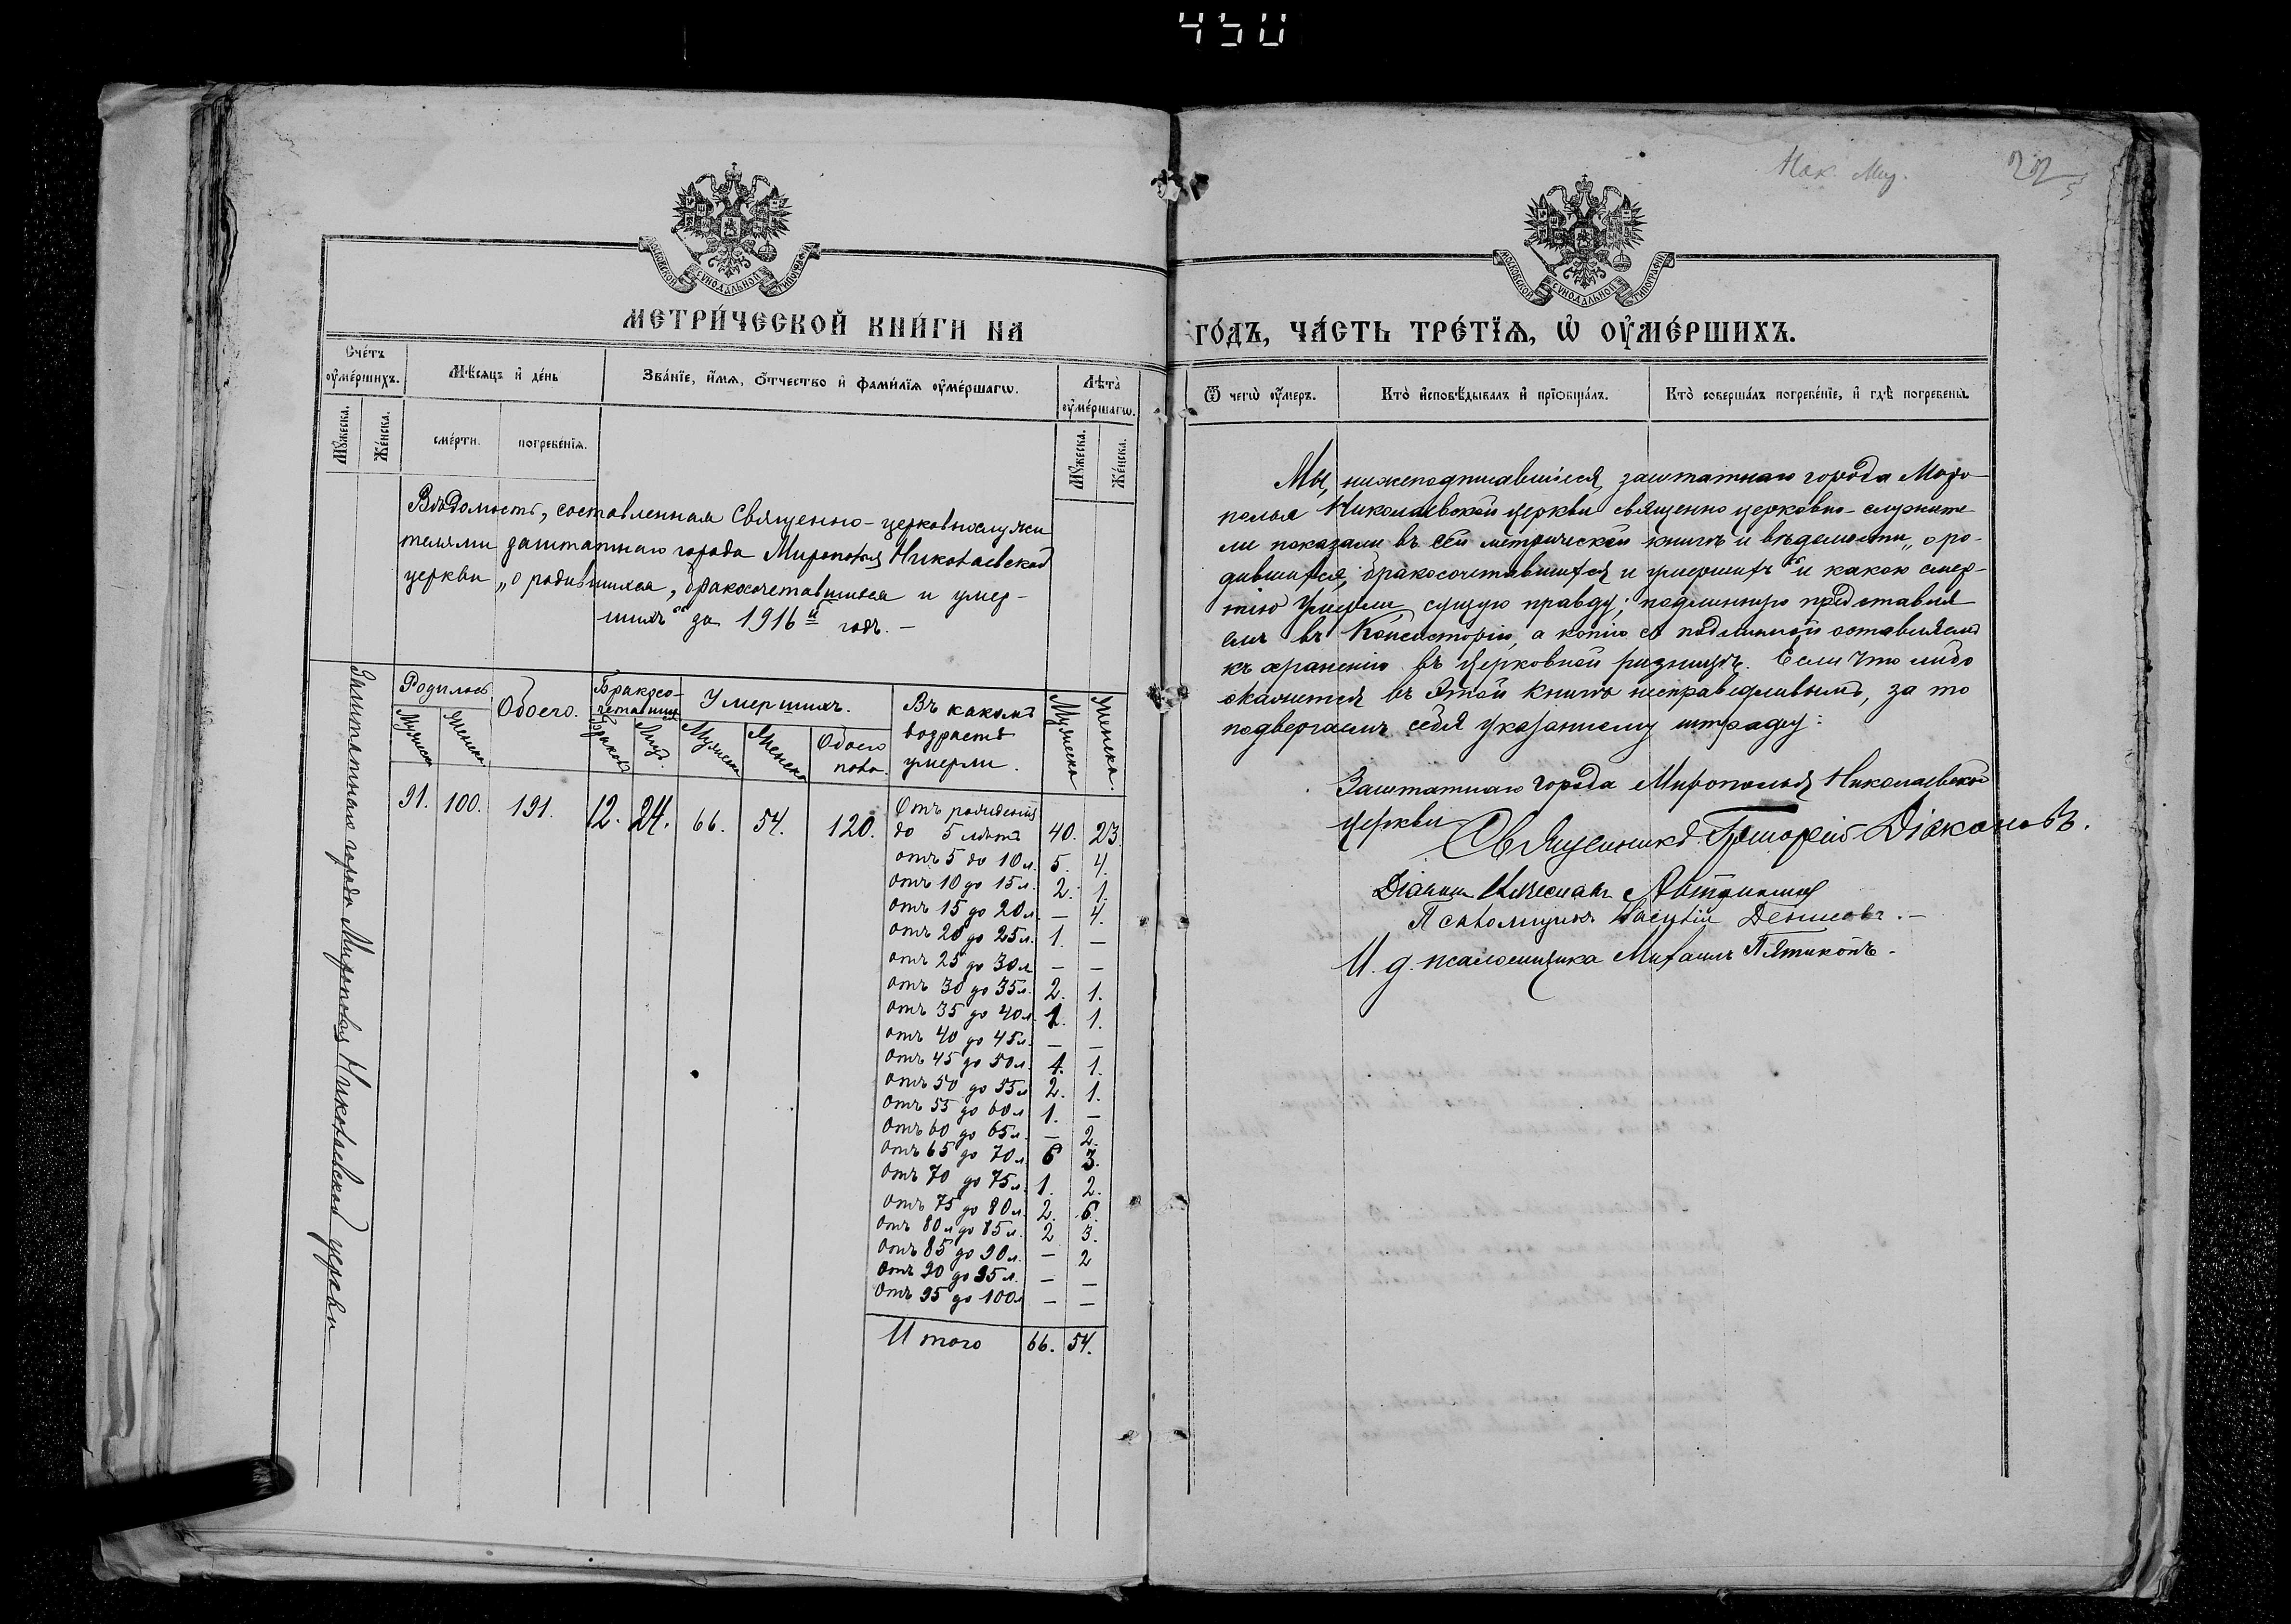 450
Нак. Миз.
МОСКОВСКОЙ СѴНОДАЛЬНОЙ ТИПОГРАФІИ
МОСКОВСКОЙ СѴНОДАЛЬНОЙ ТИПОГРАФІИ
МЕТРИ́ЧЕСКОЙ КНИ́ГИ НА
Сче́тъ ᲂу҆ме́ршихъ.
Мѣ́сяцъ и҆ де́нь
Зва́нїе, и҆́мѧ, ѻ҆́тчество и҆ фами́лїѧ ᲂу҆ме́ршагѡ.
Лѣ́та ᲂу҆ме́ршагѡ.
Мꙋ́жеска.
Же́нска.
сме́рти.
погребе́нїѧ.
Мꙋ́жеска.
Же́нска.
Вѣдомость, составленная Священно-церковнослужи
телями заштатнаго города Мирополья Николаевской
церкви „о родившихся, бракосочетавшихся и умер-
шихъ“ за 1916й годъ. –
Заштатнаго города Мирополья Николаевской церкви
Родилось
Обоего.
Бракосо-
четавшихся
Умершихъ.
Въ какомъ
возрастѣ
умерли.
Мужеска
Женска.
Мужеска
Женска
Браковъ
Лицъ.
Мужеска
Женска
Обоего
пола.
91. 100. 191. 12. 24. 66. 54. 120.
Отъ рожденія
до 5 лѣтъ 40. 23.
отъ 5 до 10 л. 5. 4.
отъ 10 до 15 л. 2. 1.
отъ 15 до 20 л. – 4.
отъ 20 до 25 л. 1. –
отъ 25 до 30 л. – –
отъ 30 до 35 л. 2. 1.
отъ 35 до 40 л. 1.
отъ 40 до 45 л. – –
отъ 45 до 50 л. 1.
отъ 50 до 55 л. 2. 1.
отъ 55 до 60 л. 1. –
отъ 60 до 65 л. – 2.
отъ 65 до 70 л. 6 3.
отъ 70 до 75 л. 1. 2.
отъ 75 до 80 л. 2. 6.
отъ 80 л. до 85 л. 2 3.
отъ 85 до 90 л. – 2
отъ 90 до 95 л. – –
отъ 95 до 100 л. – –
Итого 66. 54.
ГО́ДЪ, ЧА́СТЬ ТРЕ́ТЇѦ, Ѡ҆ ОУ҆МЕ́РШИХЪ.
Ѿ чегѡ̀ ᲂу҆́меръ.
Кто̀ и҆сповѣ́дывалъ и҆ прїѡбща́лъ.
Кто̀ соверша́лъ погребе́нїе, и҆ гдѣ̀ погребены̀.
Мы, нижеподписавшіеся, заштатнаго города Миро-
полья Николаевской церкви священно церковно-служите-
ли показали въ сей метрической книгѣ и вѣдомости „о ро-
дившихся, бракосочетавшихся и умершихъ“ и какою смер-
тію умерли, сущую правду; подлинную представля
емъ въ Консисторію, а копію съ подлинной оставляемъ
къ храненію въ церковной ризницѣ. Если что либо
окажется въ этой книгѣ несправедливымъ, за то
подвергаемъ себя указанному штрафу:
Заштатнаго города Мирополья Николаевской
церкви
Священникъ Григорій Діаконовъ.
Діаконъ
Псаломщикъ Василій Денисовъ. –
И. д. псаломщика Михаилъ Пятикопъ.